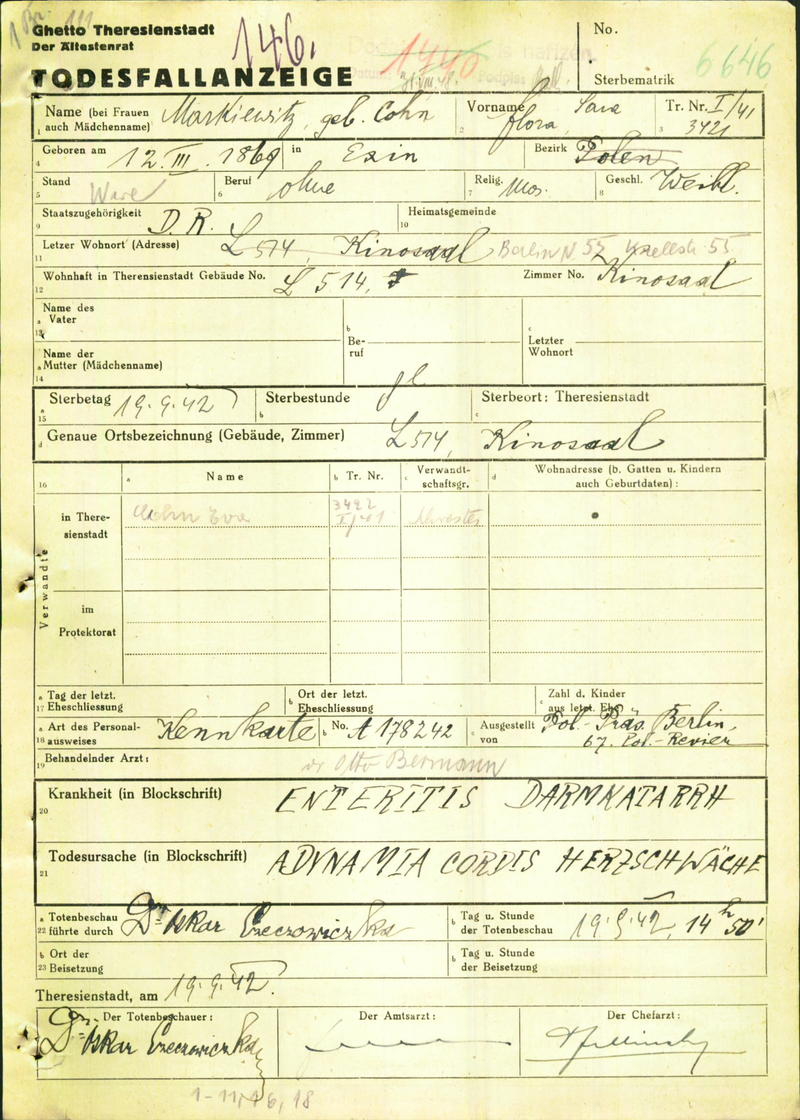 Ghetto Theresienstadt
Der Ältestenrat
TODESFALLANZEIGE
146.
1440
No.
Sterbematrik
6646
1 Name (bei Frauen auch Mädchenname) Markiewitz, geb. Cohn
2 Vorname Flora Sara
3 Tr. Nr. I/41 3421
4 Geboren am 12. III. 1869 in Exin Bezirk Polen
5 Stand 6 Beruf ohne 7 Relig. mos. 8 Geschl. Weibl.
9 Staatszugehörigkeit D. R. 10 Heimatsgemeinde
11 Letzer Wohnort (Adresse) L 514, Kinosaal Berlin N 55 55
12 Wohnhaft in Therensienstadt Gebäude No. L 514, Zimmer No. Kinosaal
13 a Name des Vater
b Beruf
c Letzter Wohnort
14 a Name der Mutter (Mädchenname)
15 a Sterbetag 19. 9. 42 b Sterbestunde c Sterbeort: Theresienstadt
d Genaue Ortsbezeichnung (Gebäude, Zimmer) L 514, Kinosaal
16 a Name b Tr. Nr. c Verwandtschaftsgr. d Wohnadresse (b. Gatten u. Kindern auch Geburtdaten):
Verwandte
in Theresienstadt Eva 3422 I/41
im Protektorat
17 a Tag der letzt. Eheschliessung b Ort der letzt. Eheschliessung c Zahl d. Kinder aus letzt. Ehe
18 a Art des Personalausweises Kennkarte b No. A 178242 c Ausgestellt von Pol.-Präs. Berlin,
67. Pol.-Revier
19 Behandelnder Arzt: Dr Otto Bermann
20 Krankheit (in Blockschrift) ENTERITIS DARMKATARRH
21 Todesursache (in Blockschrift) ADYNAMIA CORDIS HERZSCHWÄCHE
22 a Totenbeschau führte durch Dr Oskar Czeczowiczka b Tag u. Stunde der Totenbeschau 19. 9. 42, 14 h 50'
23 b Ort der Beisetzung b Tag u. Stunde der Beisetzung
Theresienstadt, am 19. 9. 42.
Der Totenbeschauer: Der Amtsarzt: Der Chefarzt:
Dr Oskar Czeczowiczka
1-11, 16, 18